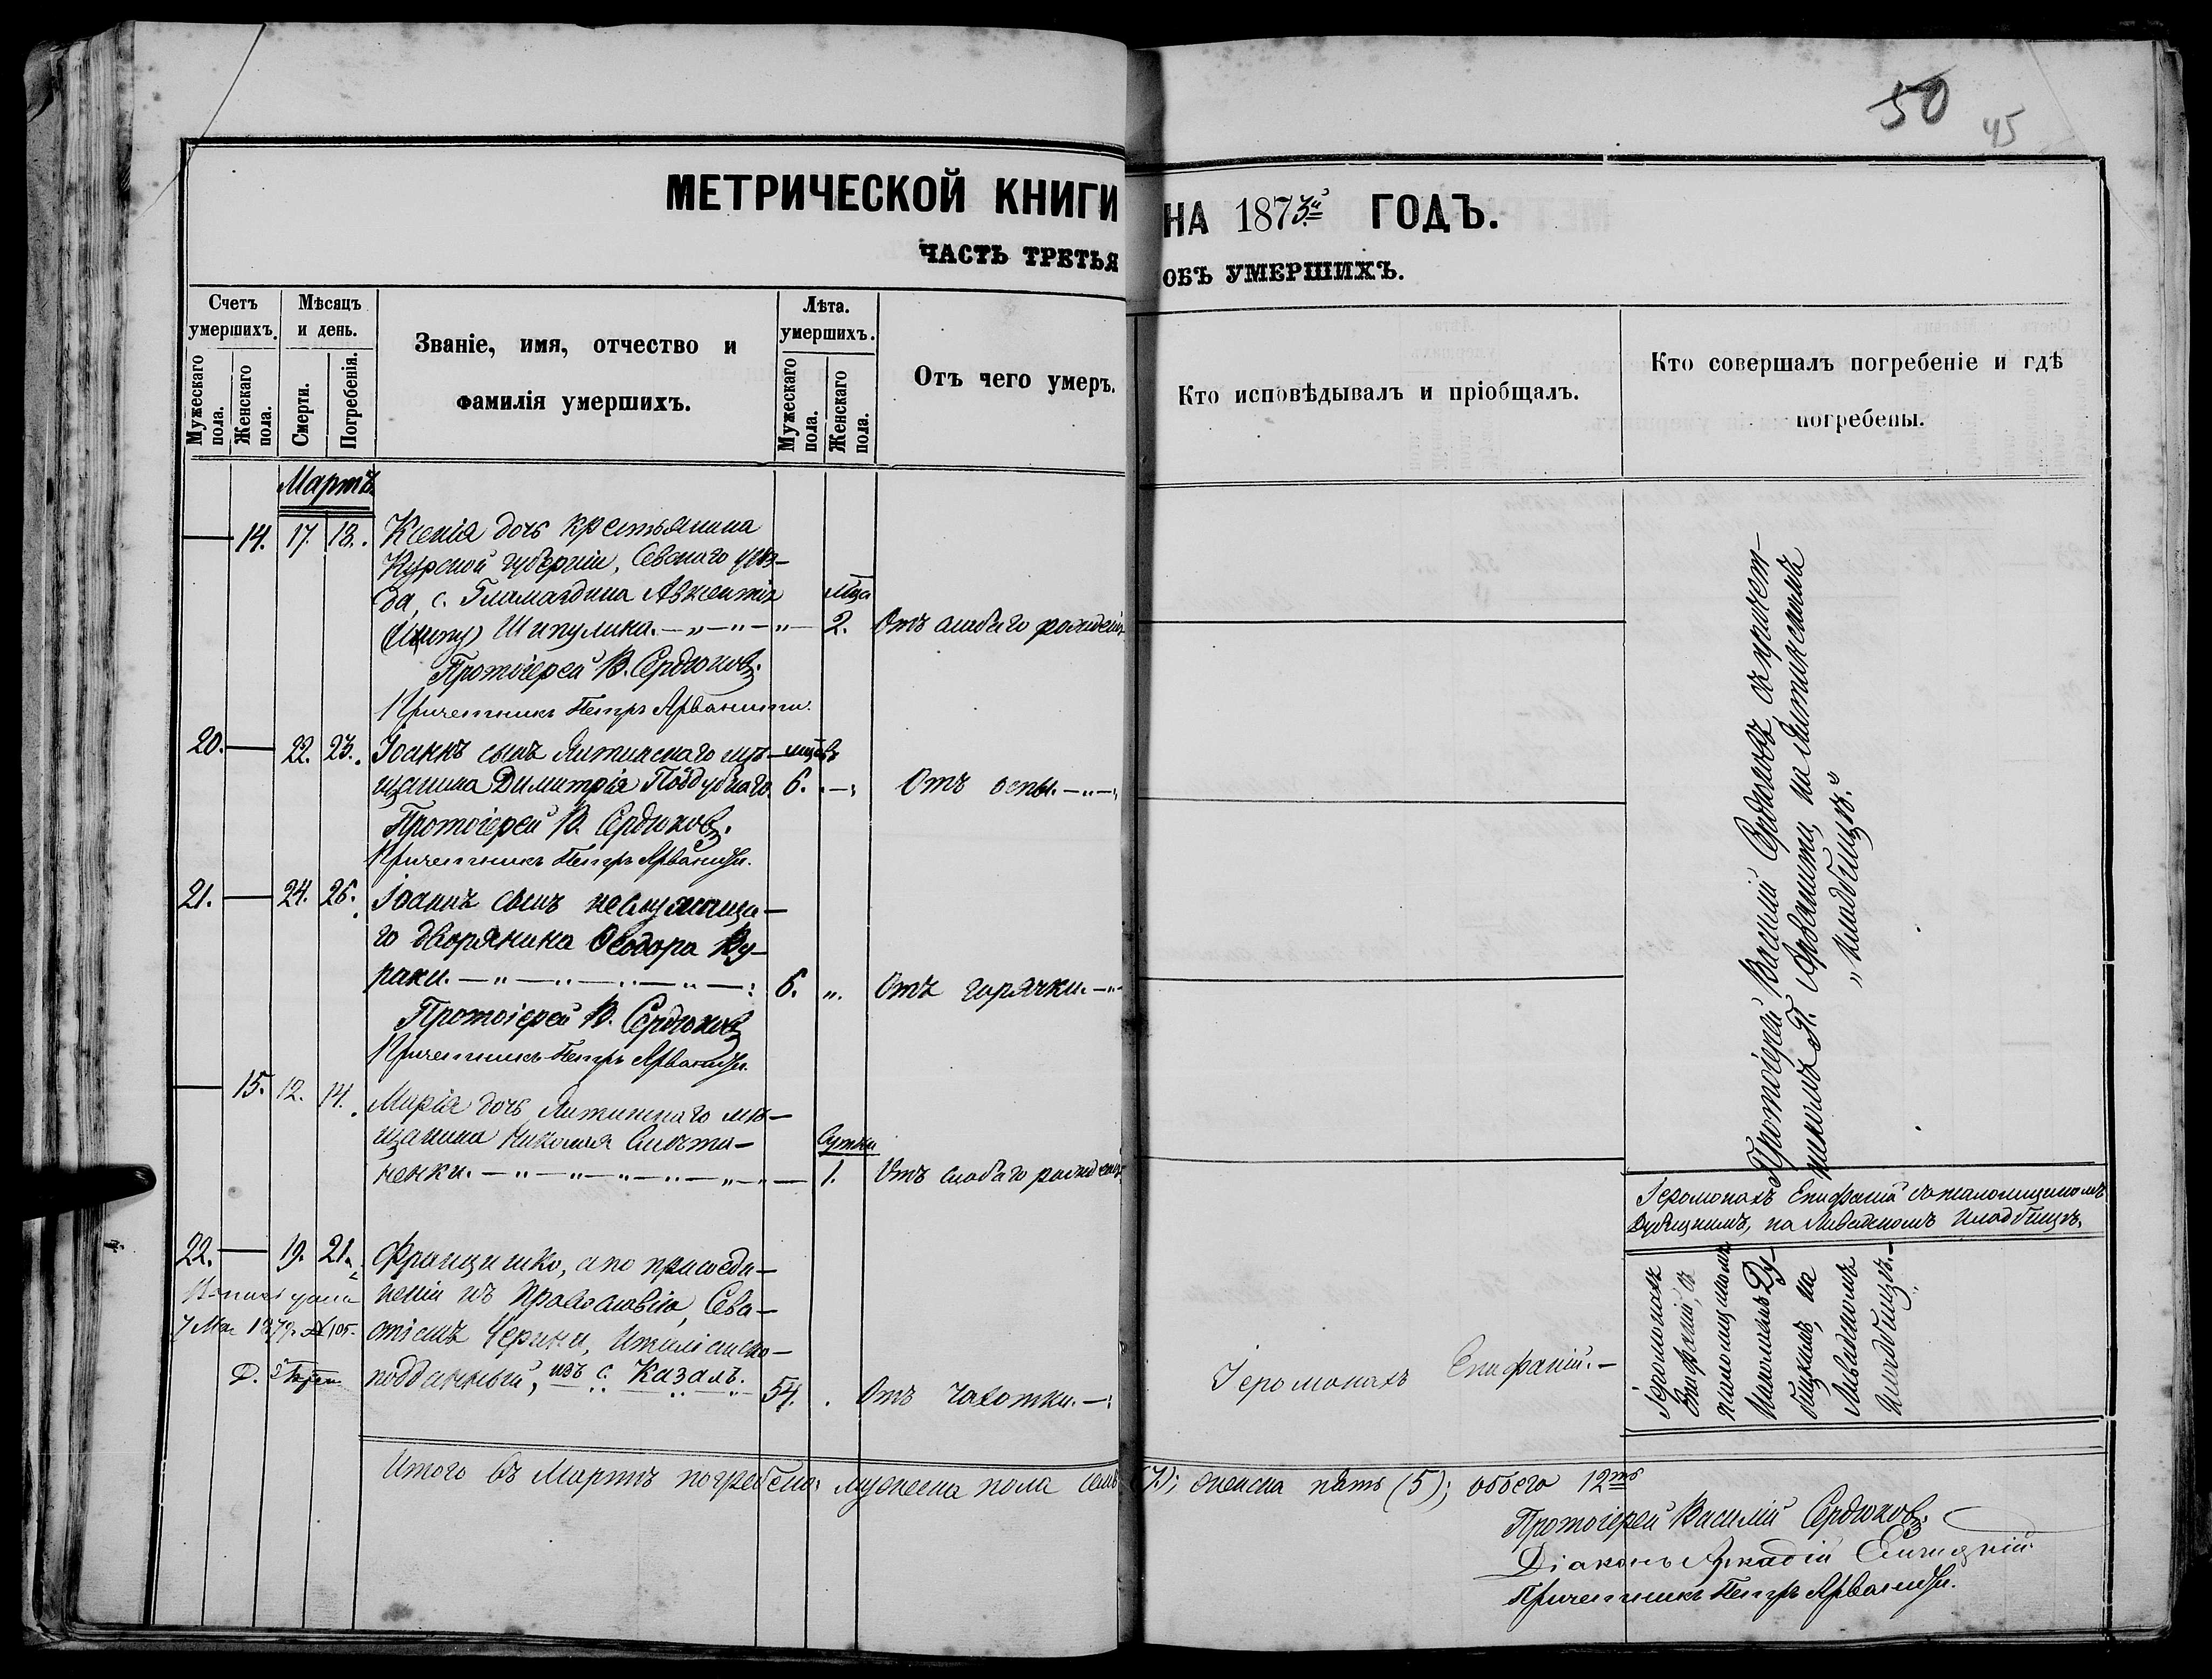 50 45
МЕТРИЧЕСКОЙ КНИГИ НА 1873й ГОДЪ.
ЧАСТЬ ТРЕТЬЯ ОБЪ УМЕРШИХЪ.
Счетъ умершихъ.
Мужескаго пола.
Женскаго пола.
Мѣсяцъ и день.
Смерти.
Погребенія.
Званіе, имя, отчество и
фамилія умершихъ.
Лѣта. умершихъ.
Мужескаго пола.
Женскаго пола.
Отъ чего умеръ.
Кто исповѣдывалъ и пріобщалъ.
Кто совершалъ погребеніе и гдѣ
погребены.
Мартъ
— 14. 17. 18. Ксенія дочь крестьянина
Курской губерніи, Севскаго уѣз-
да, с. Авксентія мца
Шипулина. — 2. Отъ слабаго рожденія
Протоіерей В. Сердюковъ.
Причетникъ Петръ Арванити.
20. — 22. 23. Іоаннъ сынъ Ялтинскаго мѣ-
щанина Димитрія Поддубнаго. 6. Отъ оспы.
Протоіерей В. Сердюковъ.
Причетникъ Петръ Арванити.
21. — 24. 26. Іоаннъ сынъ неслужаща-
го дворянина Ѳеодора Ку-
раки. 6. Отъ горячки.
Протоіерей В. Сердюковъ
Причетникъ Петръ Арванити.
— 15. 12. 14. Марія дочь Ялтинскаго мѣ-
щанина Николая
ненки. Сутки 1. Отъ слабаго рожденія
22. — 19. 21. Францишко, а по присоеди-
неніи къ православію, Сева-
стіанъ Черини, Италіанско-
подданный, изъ с. Казалъ. 54. Отъ чахотки. Іеромонахъ Епифаній.
7 Мая 1879. № 105.
Протоіерей Василій Сердюковъ съ причет-
никомъ П. Арванити, на Ялтинскомъ
кладбищѣ.
Іеромонахъ Епифаній съ псаломщикомъ
Дубицкимъ, на Ливадскомъ кладбищѣ.
Іеромонахъ
Епифаній, съ
псаломщикомъ
Николаемъ Ду-
бицкимъ, на
Ливадскомъ
кладбищѣ.
Итого въ Мартѣ погребено: мужеска пола семь (7); женска пять (5); обоего 12ть
Протоіерей Василій Сердюковъ.
Діаконъ Аркадій
Причетникъ Петръ Арванити.